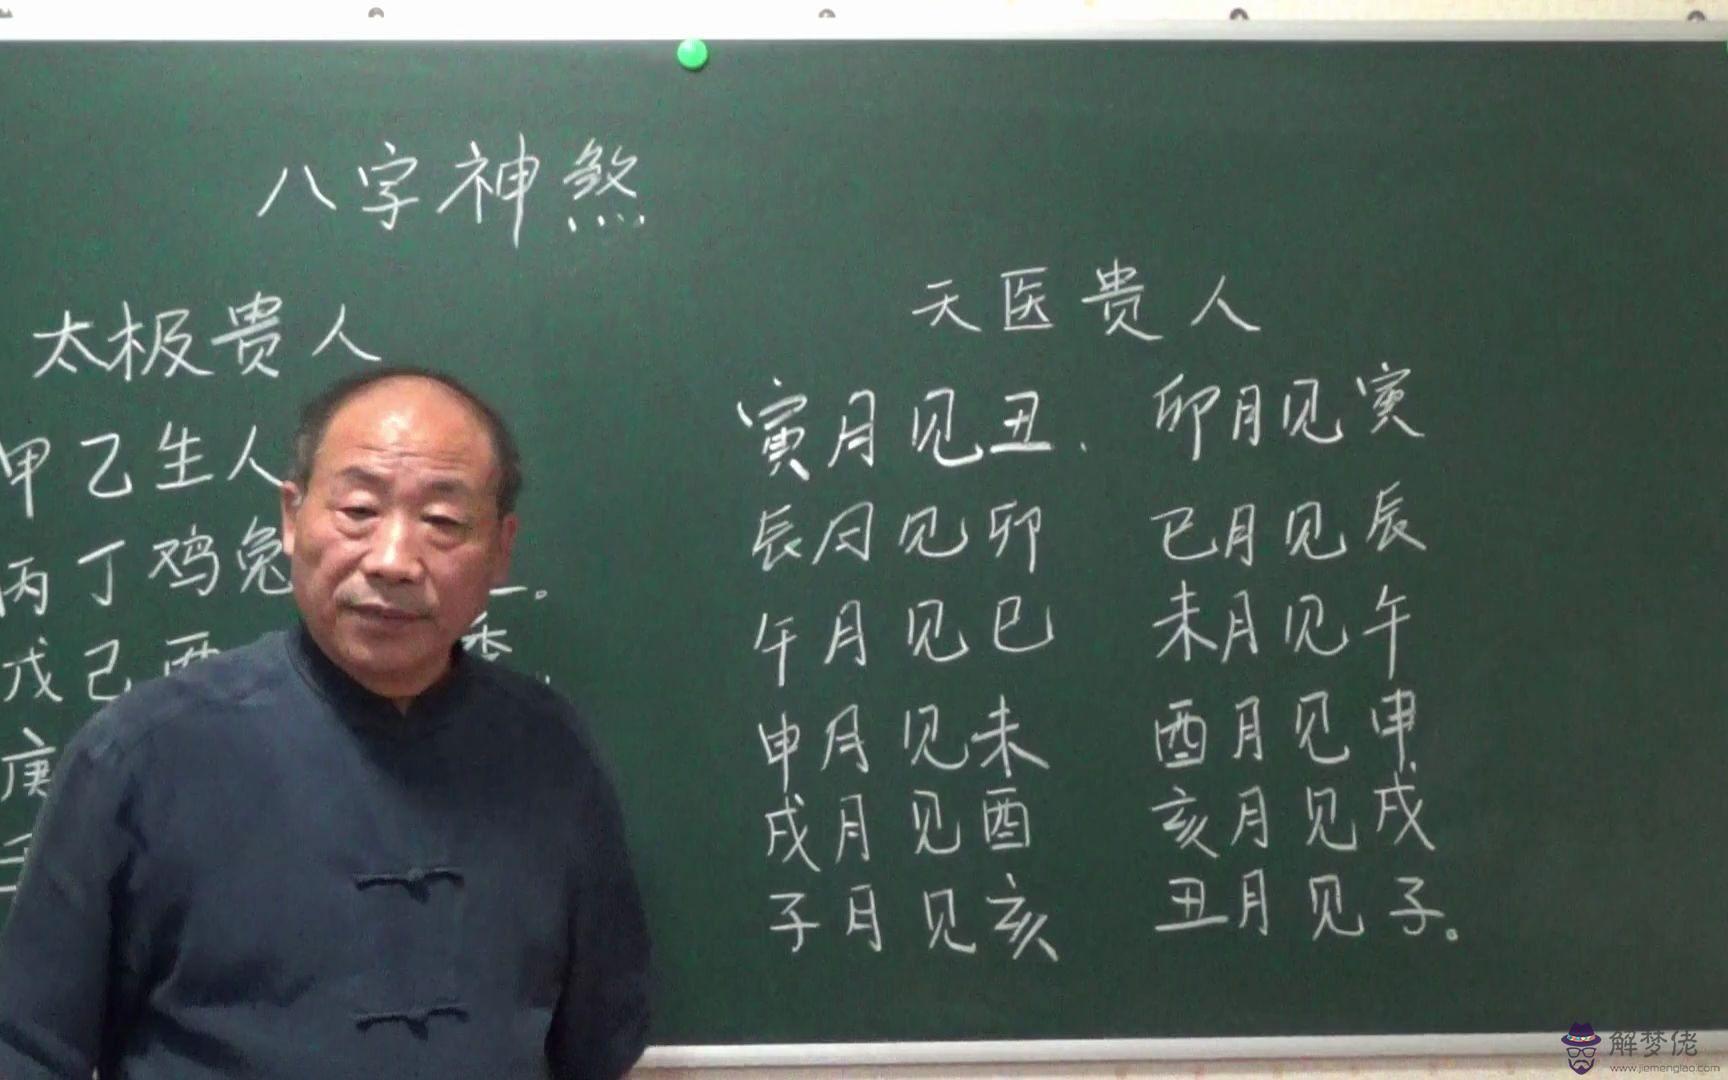 八字神煞
太极贵人
甲乙生人
丙丁鸡兔
戊己酉
庚
壬
天医贵人
寅月见丑、 卯月见寅
辰月见卯 巳月见辰
午月见巳 未月见午
申月见未 酉月见申
戌月见酉 亥月见戌
子月见亥 丑月见子。
解梦佬
www.jiemenglao.com